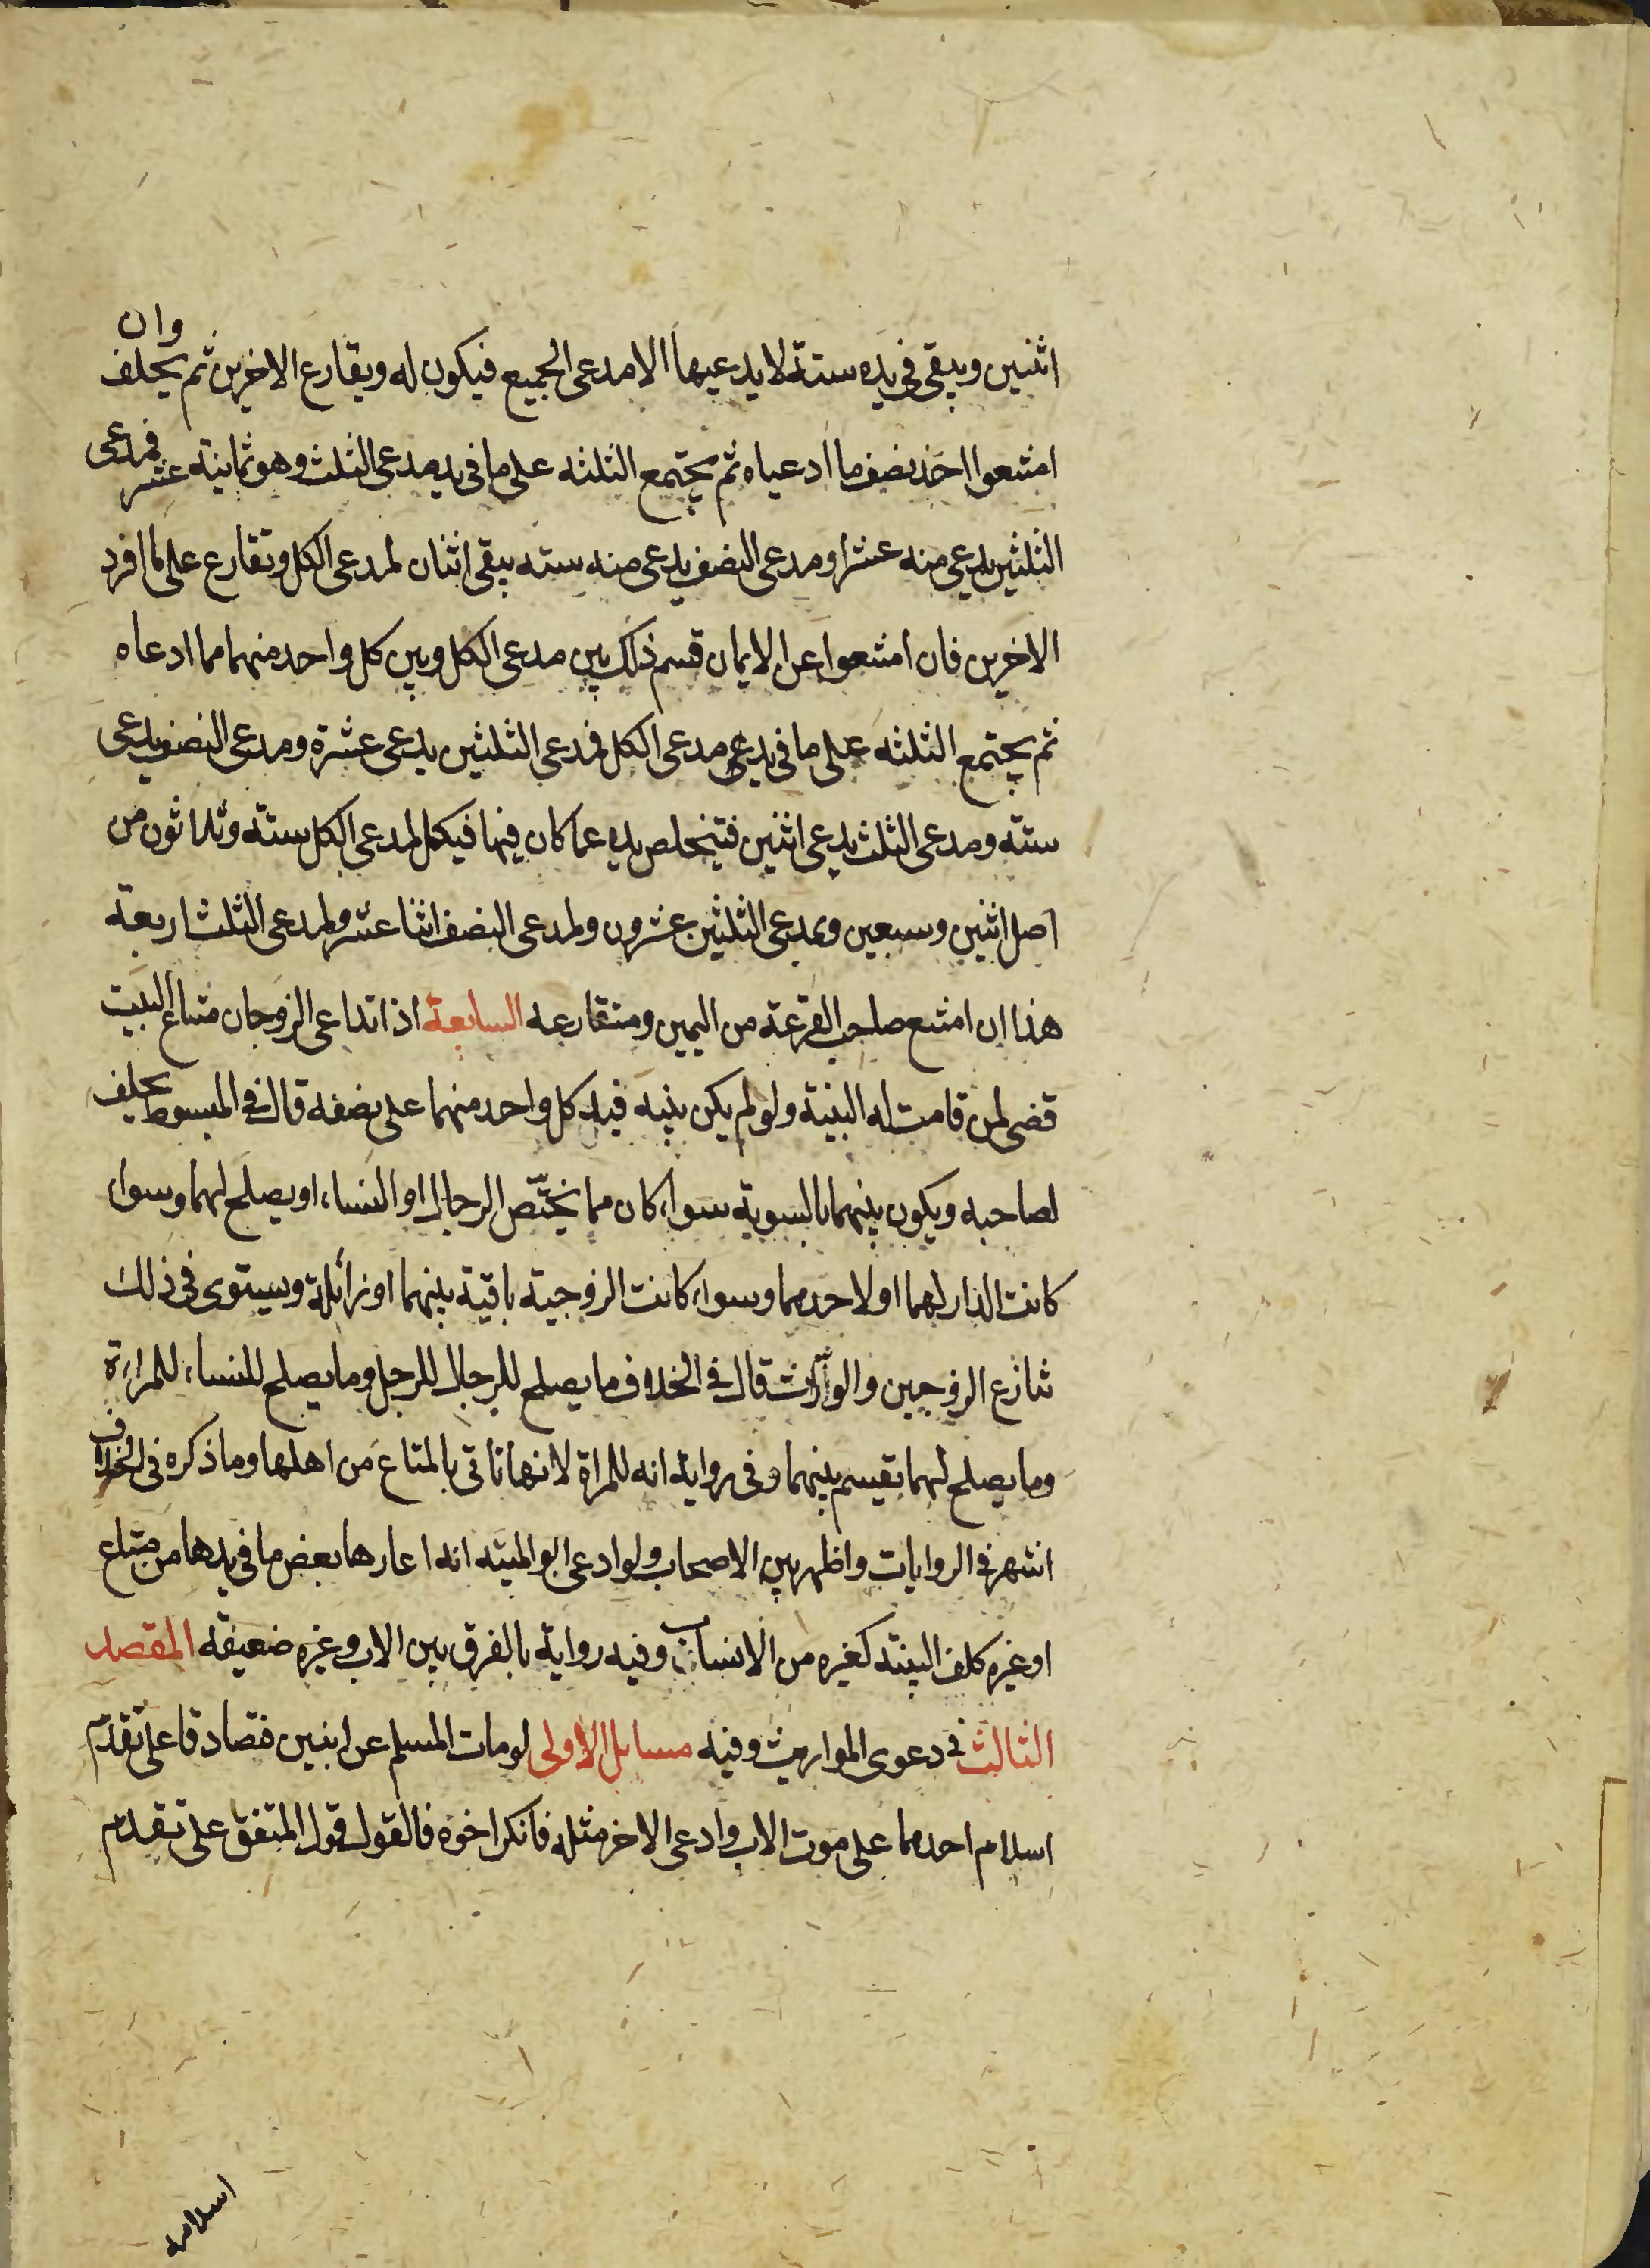 اثنين ويبقى فى يده ستة لا يدعيها الا مدعى الجميع فيكون له ويقارع الاخرين ثم يحلف وان
امتنعوا اخذ نصف ما ادعياه ثم يجتمع الثلثه على ما فى يد مدعى الثلث وهو ثمانية عشر فمدعى
الثلثين يدعى منه عشرا ومدعى النصف يدعى منه سته يبقى اثنان لمدعى الكل وتقارع على ما افرد
الاخرين فان امتنعوا عن الايمان قسم ذلك بين مدعى الكل وبين كل واحد منهما مما ادعاه
ثم يجتمع الثلثه على ما فى يدعى مدعى الكل فمدعى الثلثين يدعى عشرة ومدعى النصف يدعى
ستة ومدعى الثلث يدعى اثنين فتخلص يده عما كان فيها فيكمل لمدعى الكل ستة وثلاثون من
اصل اثنين وسبعين ولمدعى الثلثين عشرون ولمدعى النصف اثنا عشر ولمدعى الثلث اربعة
هذا ان امتنع صاحب القرعة من اليمين ومتقارعه السابعة اذا تداعى الزوجان متاع البيت
قضى لمن قامت له البينة ولو لم يكن بينه فيد كل واحد منهما على نصفه قال فى المبسوط يحلف
لصاحبه ويكون بينهما بالسوية سواء كان مما يختص الرجال او النساء او يصلح لهما وسواء
كانت الدار لهما او لاحدهما وسواء كانت الزوجية باقية بينهما او زائلة وسيتوى فى ذلك
تنازع الزوجين والوارث قال فى الخلاف ما يصلح للرجال للرجل وما يصلح للنساء للمراءة
وما يصلح لهما يقسم بينهما وفى رواية انه للمراة لانها تاتى بالمتاع من اهلها وما ذكره فى الخلاف
اشهر فى الروايات واظهر بين الاصحاب ولو ادعى ابو الميته انه اعارها بعض ما فى يدها من متاع
او غيره كلف البينة كغيره من الانساب وفيه رواية بالفرق بين الاب وغيره ضعيفة المقصد
الثالث فى دعوى المواريث وفيه مسايل الاولى لو مات المسلم عن ابنين فتصادقا على تقدم
اسلام احدهما على موت الاب وادعى الاخر مثله فانكر اخوه فالقول قول المتفق على تقدم
اسلامه